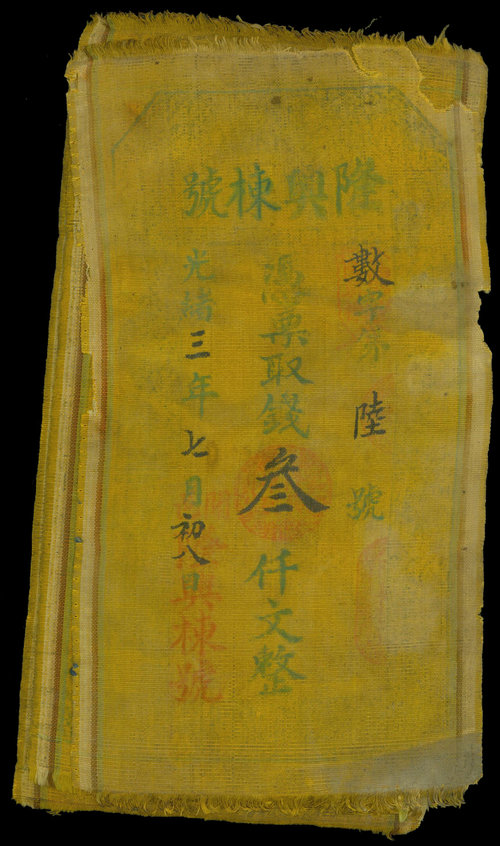 隆興棟號
數字第陸號
憑票取錢叁仟文整
光緒三年七月初八日
興棟號